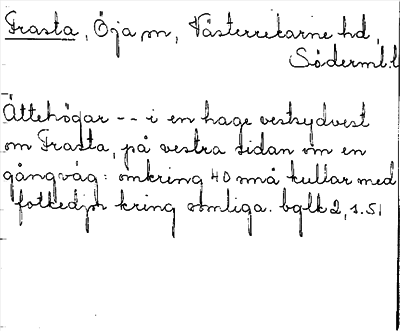 Frasta, Öja sn, Västerrekarne hd,
Söderml.l
Ättehögar -- i en hage vestsydvest
om Frasta, på vestra sidan om en
gångväg: omkring 40 små kullar med
fotkedja kring somliga. bglk 2, s. 51